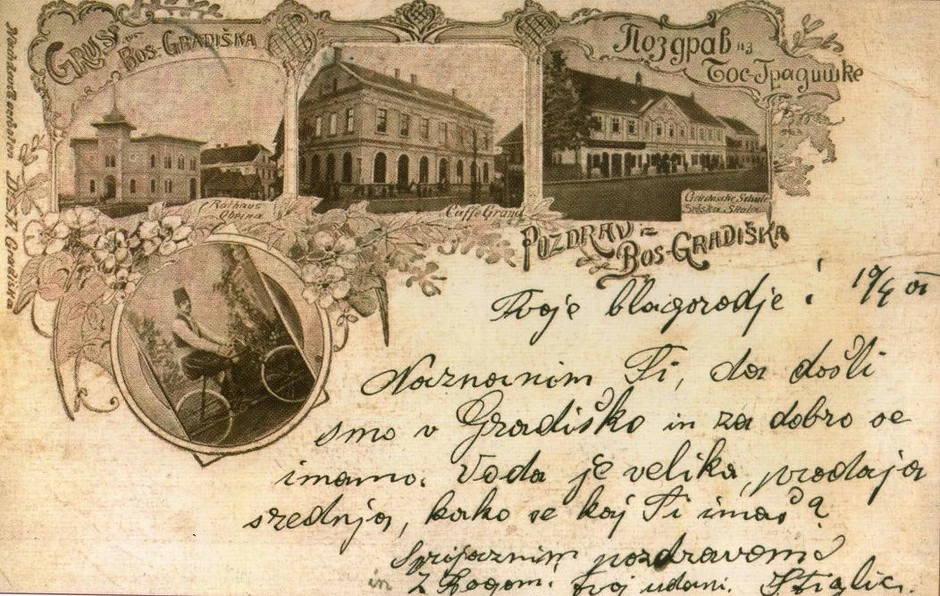 GRUSS aus
BOS-GRADIŠKA
Поздрав из
Бос-Градишке
Rathaus
Obćina
Caffe Grand
Griechische Schule
Srpska Skola
POZDRAV iz
BOS-GRADIŠKA
Tvoje blagorodje! 19/4 01
Naznanim Ti, da došli
smo v Gradiško in za dobro se
imamo. Voda je velika, prodaja
srednja, kako se kaj Ti imaš?
Sprijaznim pozdravom
in z Bogom. tvoj udani. Stiglic.
Gradiška